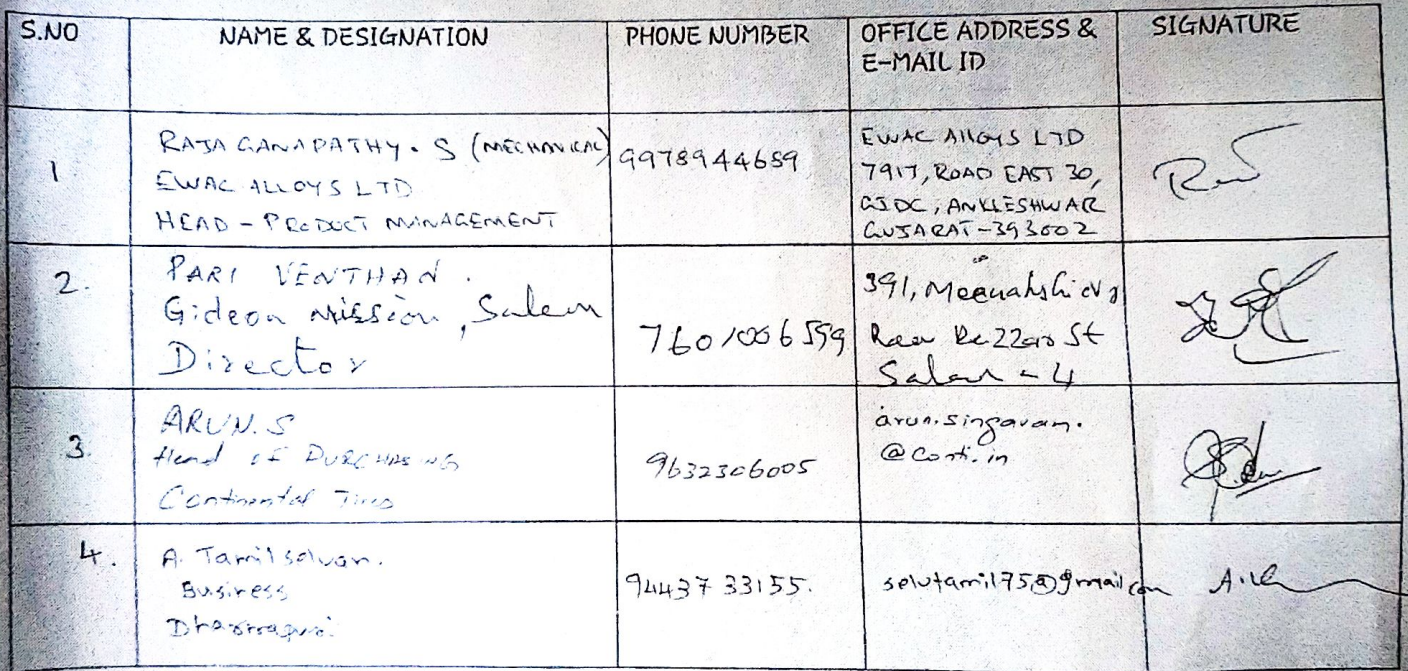 S.NO NAME & DESIGNATION PHONE NUMBER OFFICE ADDRESS & E-MAIL ID SIGNATURE
1
RAJA GANAPATHY. S (MECHANICAL)
EWAC ALLOYS LTD
HEAD - PRODUCT MANAGEMENT
9978944659
EWAC AllOYS LTD
7917, ROAD EAST 30,
GIDC, ANKLESHWAR
GUJARAT-393002
2.
PARI VENTHAN.
Gideon Mission, Salem
Director
7601006599
391, Meenakshi
St
Salem - 4
3.
ARUN. S
Head of PURCHASING
Continental Tires
9632306005
arun.singavan.
@conti.in
4.
A. Tamilselvan.
Business
Dharmapuri.
94437 33155.
selutamil75@gmail.com